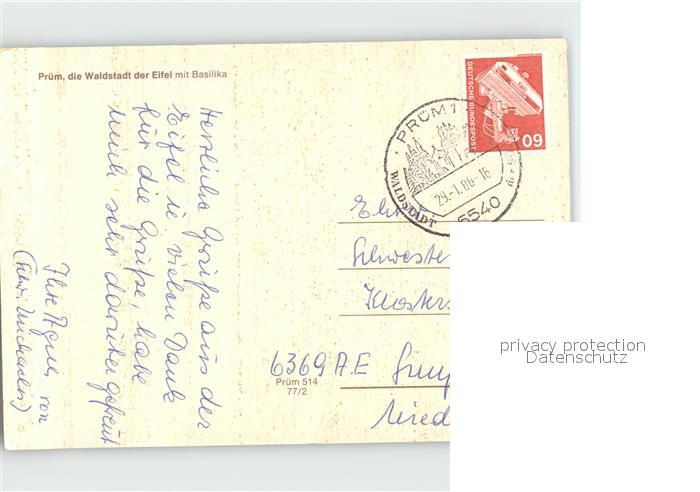 Prüm, die Waldstadt der Eifel mit Basilika
Herzliche Grüße aus der
Eifel u vielen Dank
für die Grüße, habe
mich sehr darüber gefreut
Ihre Agnes von
DEUTSCHE BUNDESPOST
60
PRÜM 1
WALDSTADT
29.-1.86-16
5540
Schwester
Kloster
6369 A.E
Prüm 514
77/2
privacy protection
Datenschutz